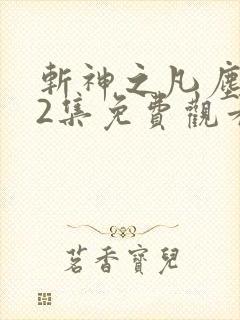 斬神之凡塵
2集免費觀看
茗香寶兒